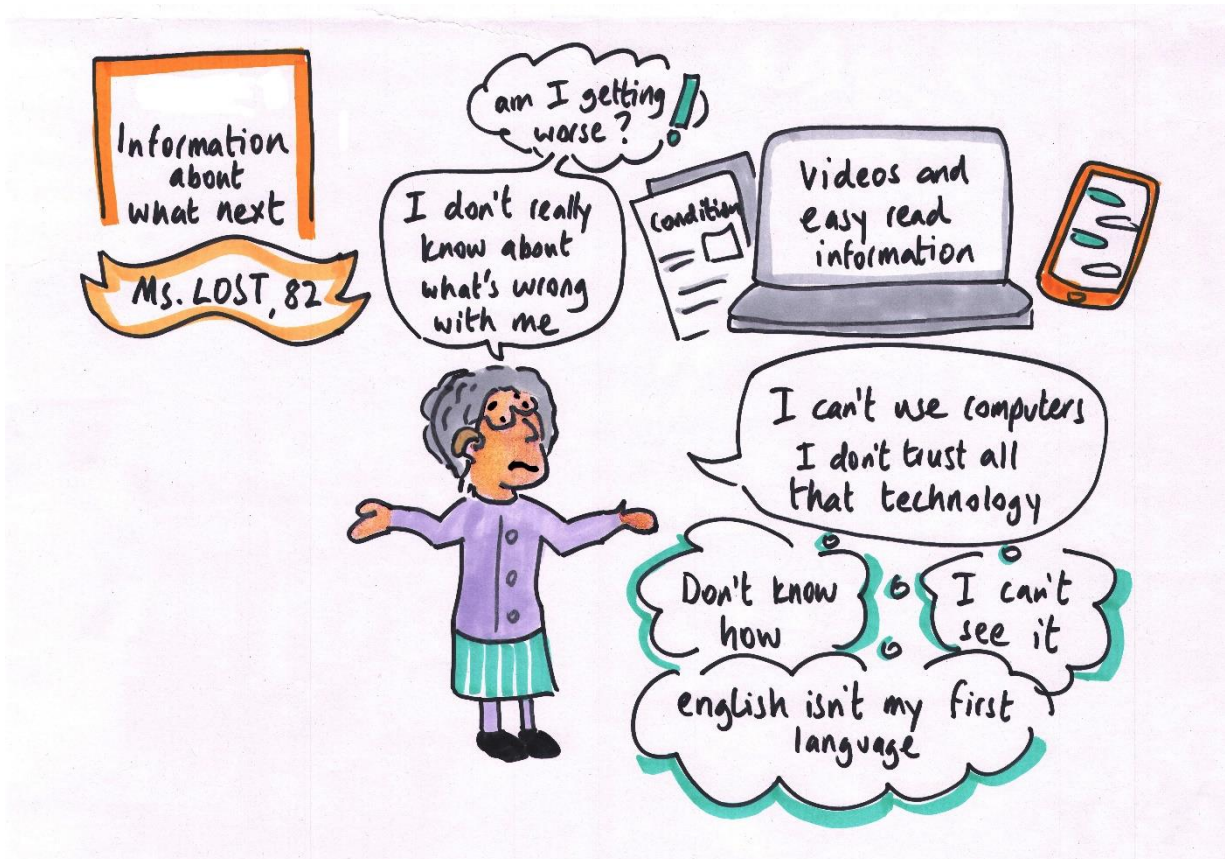 Information
about
what next
Ms. LOST, 82
am I getting
worse?
!
I don't really
know about
what's wrong
with me
condition
Videos and
easy read
information
I can't use computers
I don't trust all
that technology
Don't know
how
I can't
see it
english isn't my first
language